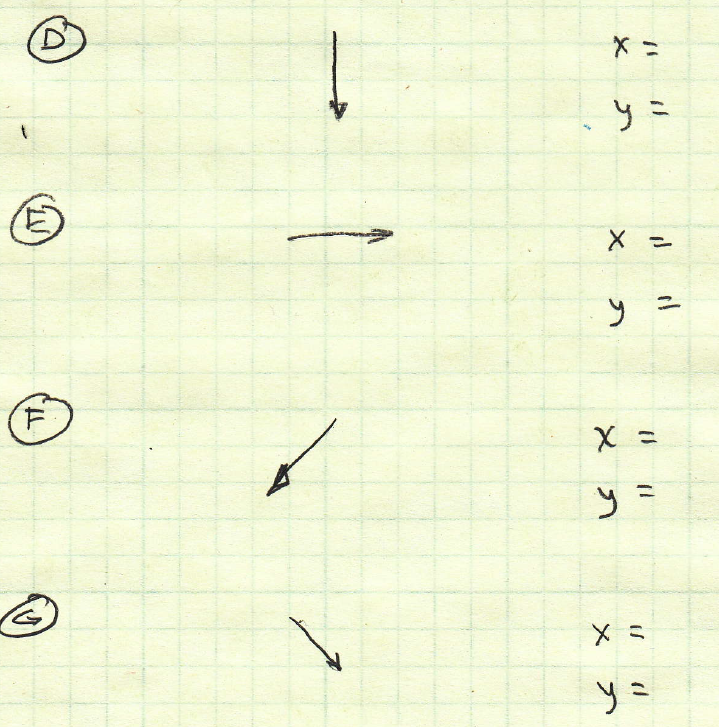 D x =
y =
E x =
y =
F x =
y =
G x =
y =